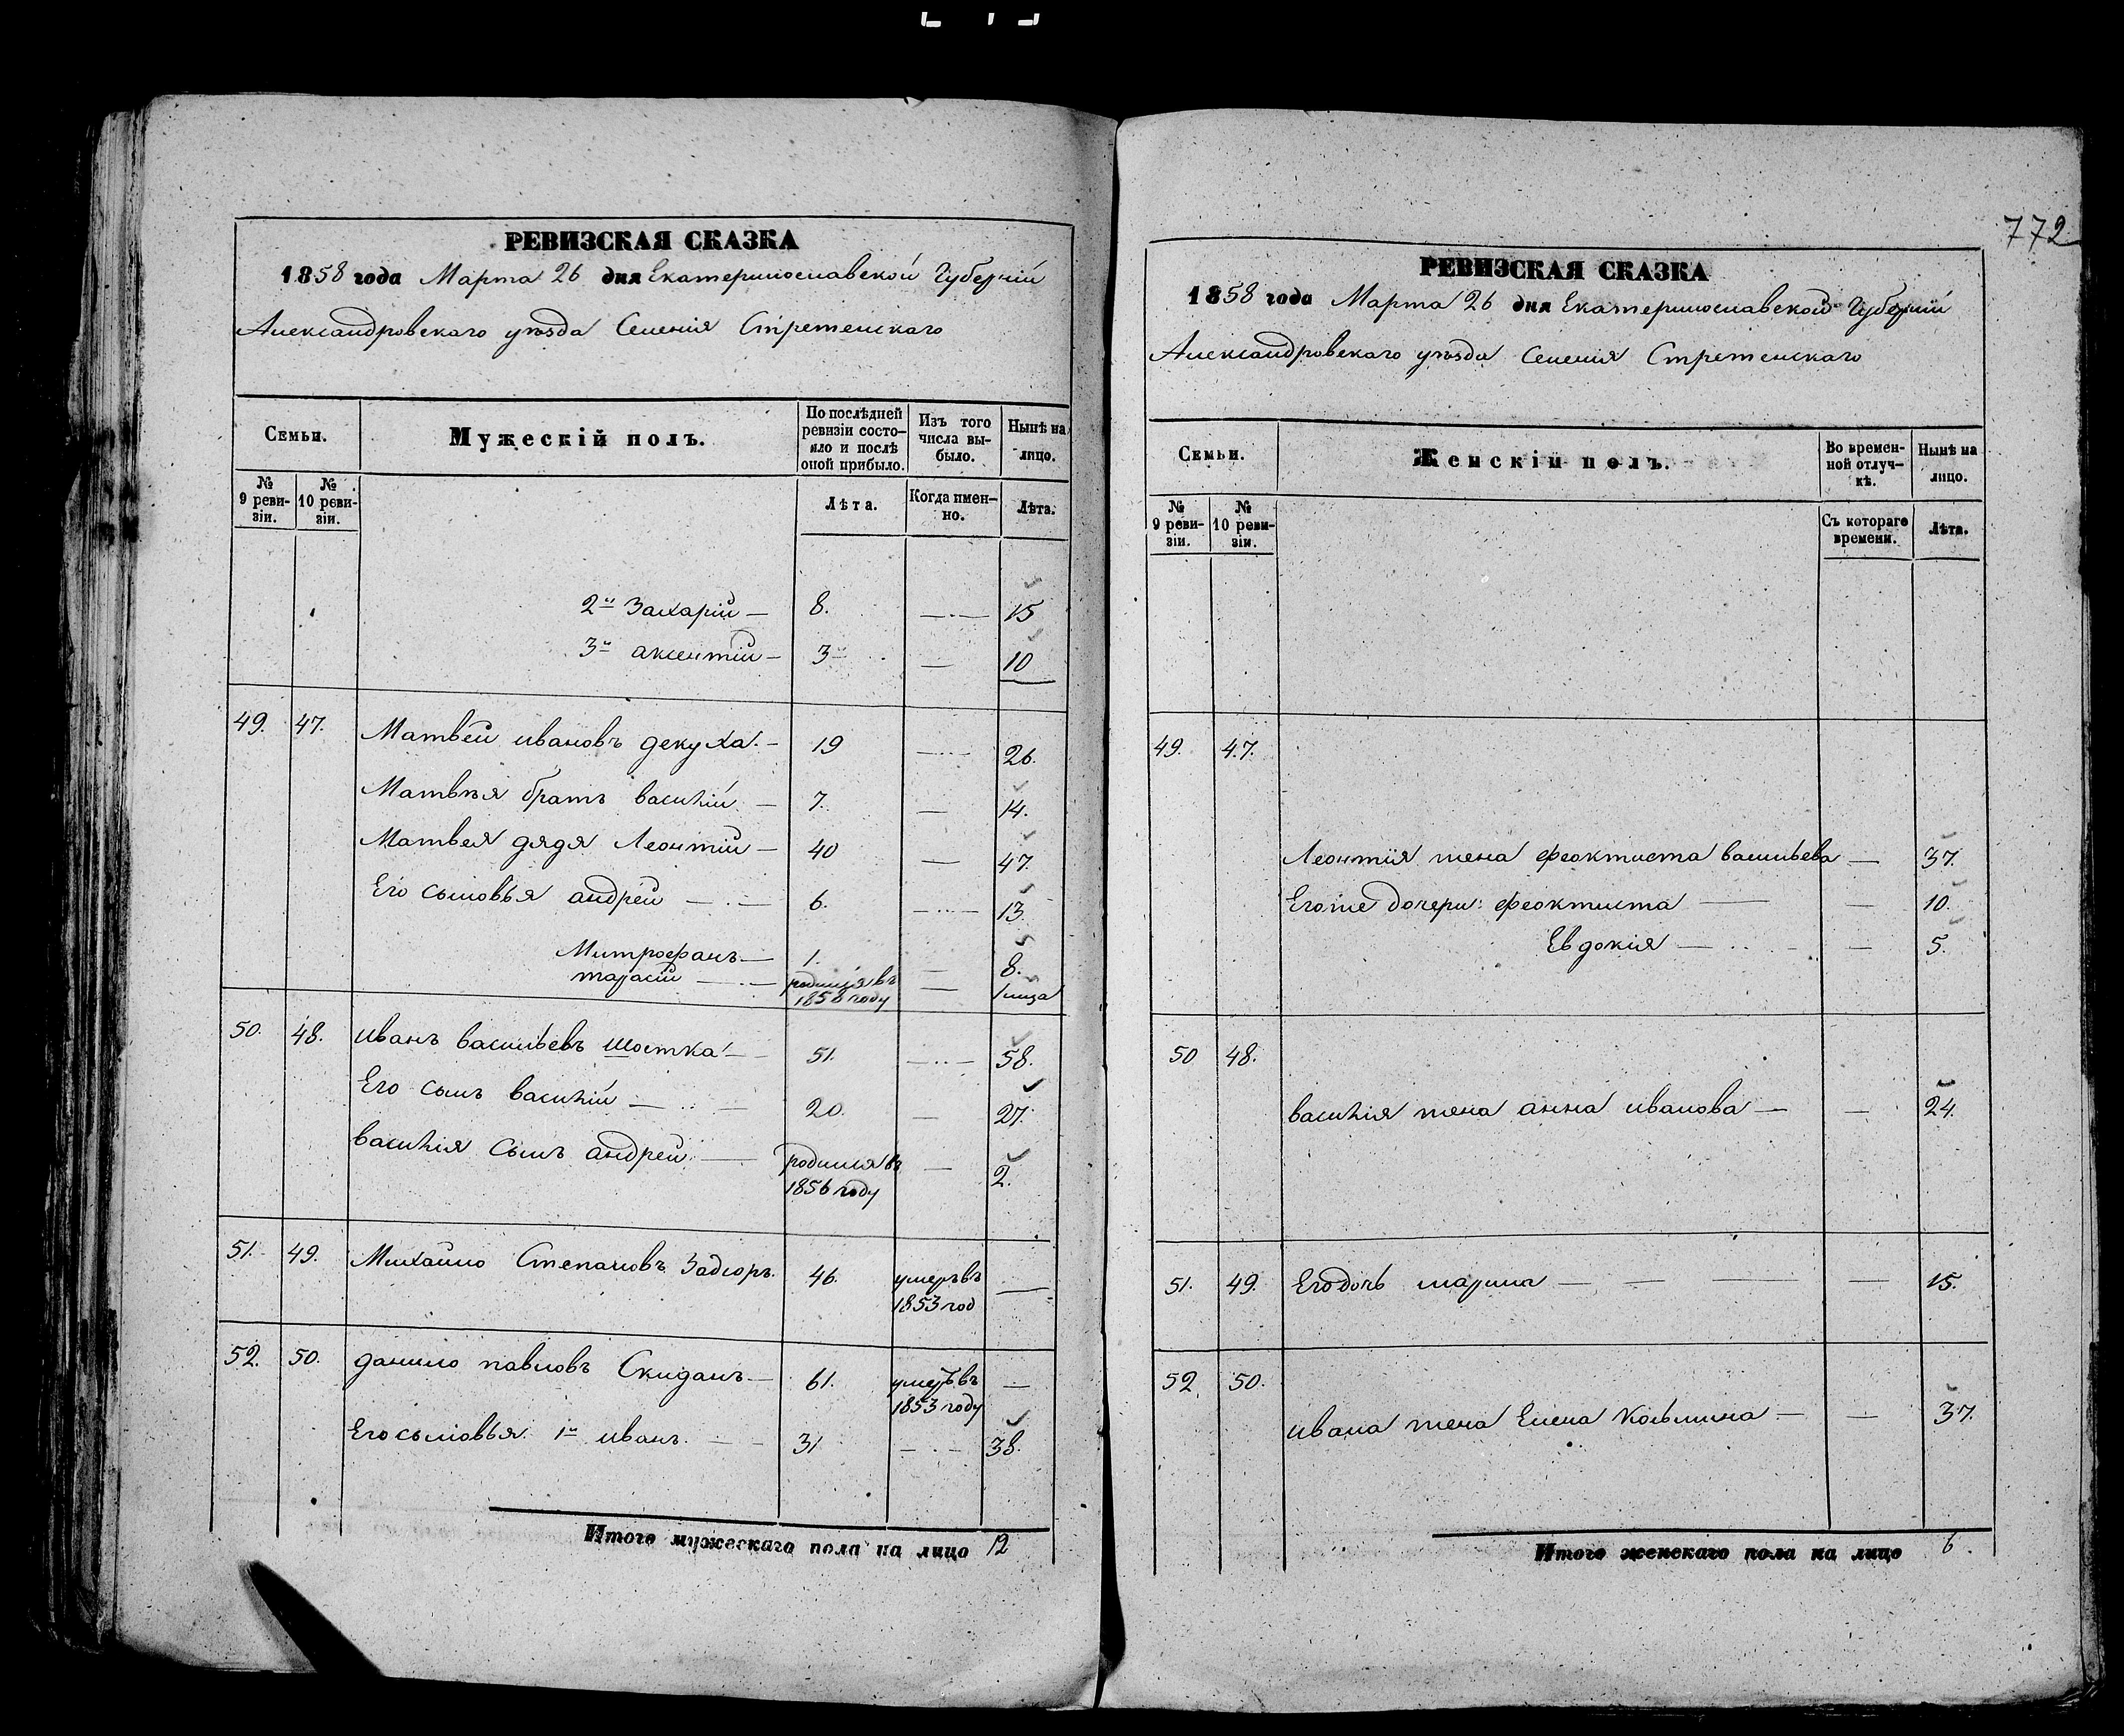 772
РЕВИЗСКАЯ СКАЗКА
1858 года Марта 26 дня Екатеринославской Губерніи
Александровскаго уѣзда Селенія Стретенскаго
Семьи.
Мужескій полъ.
По послѣдней ревизіи состо-
яло и послѣ оной прибыло.
Изъ того числа вы-
было.
Нынѣ на лицо.
№ 9 реви-
зіи.
№ 10 реви-
зіи.
Лѣта.
Когда имен-
но.
Лѣта.
2й Захарій — 8. — 15
3й аксентій — 3 — 10
49. 47. Матвей ивановъ декуха — 19 — 26.
Матвѣя братъ василій — 7. — 14.
Матвея дядя Леонтій — 40 — 47.
Его сыновья андрей — 6. — 13.
Митрофанъ — 1. — 8.
тарасій — родился въ — 1 мца
1858 году
50. 48. иванъ васильевъ шостка — 51. — 58.
Его сынъ василій — 20. — 27.
василія сынъ андрей — родился въ — 2.
1856 году
51. 49. Михайло Степановъ Задсоръ. 46. умеръ въ —
1853 год
52. 50. данило павловъ Скиданъ — 61. умеръ въ —
1853 году
Его сыновья 1й иванъ — 31 — 38.
Итого мужескаго пола на лицо 12
РЕВИЗСКАЯ СКАЗКА
1858 года Марта 26 дня Екатеринославской Губерніи
Александровскаго уѣзда Селенія Стретенскаго
Семьи.
Женскій полъ.
Во времен-
ной отлуч-
кѣ.
Нынѣ на лицо.
№ 9 реви-
зіи.
№ 10 реви-
зіи.
Съ котораго времени.
Лѣта.
49. 47.
Леонтія жена феоктиста васильева — 37.
Его же дочери: феоктиста — — 10.
Евдокія — — 5.
50 48.
василія жена анна иванова — — 24.
51. 49. Его дочь марина — — 15.
52. 50.
ивана жена Елена Козьмина — — 37.
Итого женскаго пола на лицо 6.